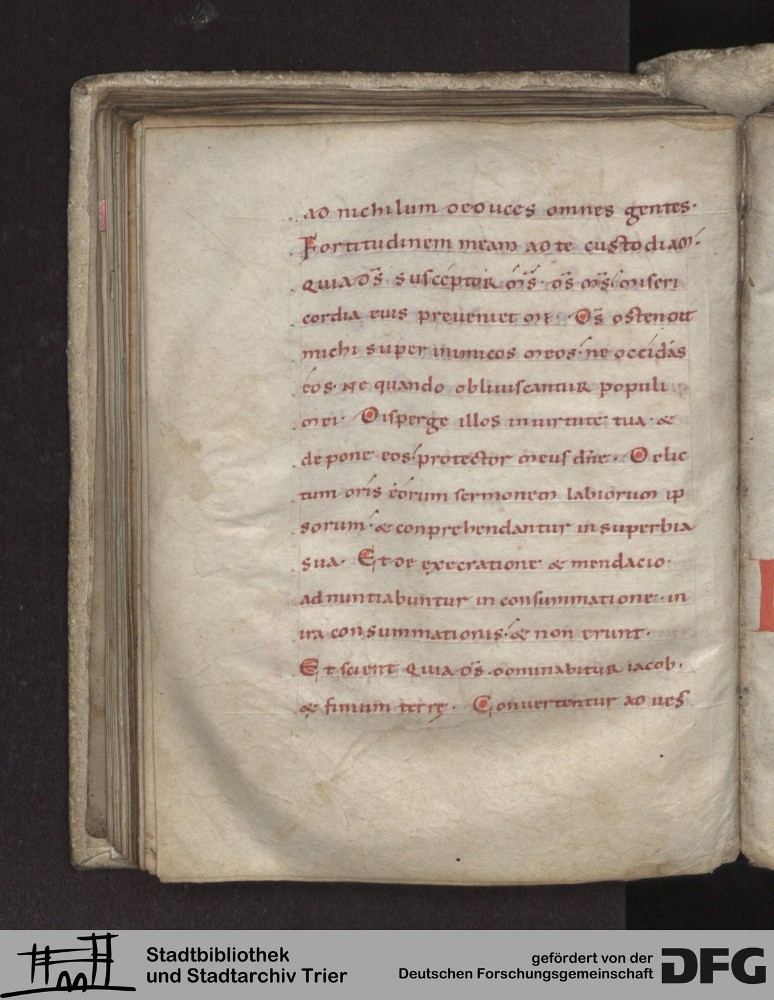 ad nichilum deduces omnes gentes.
Fortitudinem meam ad te custodiam.
quia ds̄ susceptor m̄s. ds̄ ms̄ miseri
cordia eius preueniet me. Ds̄ ostendit
michi super inimicos meos. ne occidas
eos. Ne quando obliuiscantur populi
mei. Disperge illos in uirtute tua. &
depone eos. protector meus dn̄e. Delic
tum oris eorum sermonem labiorum ip
sorum. & conprehendantur in superbia
sua. Et de execratione & mendacio.
adnuntiabuntur in consummatione. in
ira consummationis. & non erunt.
Et scient quia ds̄ dominabitur iacob.
& finium terrę. Conuertentur ad ues
Stadtbibliothek
und Stadtarchiv Trier
gefördert von der
Deutschen Forschungsgemeinschaft
DFG